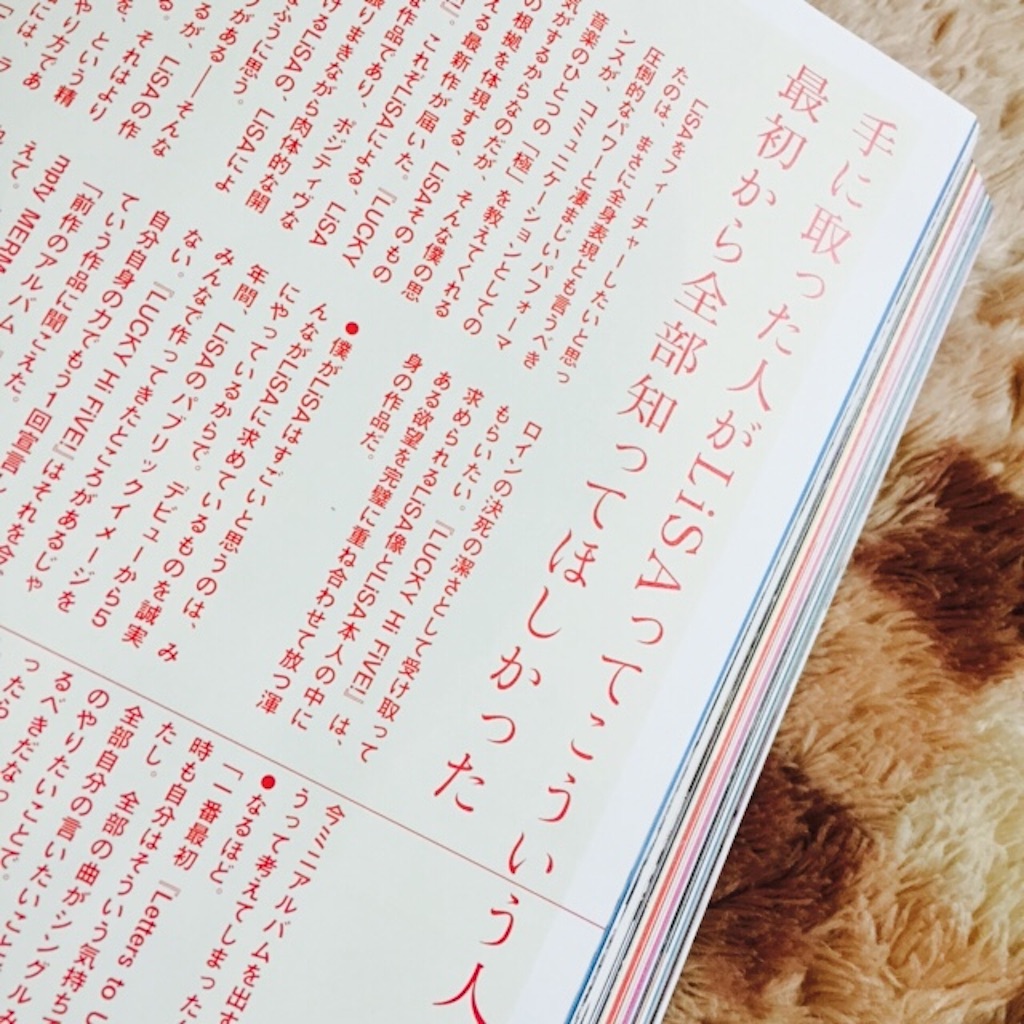 手に取った人がLiSAってこういう人
最初から全部知ってほしかった
LiSAをフィーチャーしたいと思っ
たのは、まさに全身表現とも言うべき
圧倒的なパワーと凄まじいパフォーマ
ンスが、コミュニケーションとしての
音楽のひとつの「極」を教えてくれる
気がするからなのだが、そんな僕の思
の根拠を体現する、LiSAそのもの
える最新作が届いた。『LUCKY
』。これぞLiSAによる、LiSA
な作品であり、ポジティヴな
振りまきながら肉体的な開
けるLiSAの、LiSAによ
なふうに思う。
うがある――そんな
るが、LiSAの作
を、それはより
という精
やり方であ
には、ラ
ロインの決死の潔さとして受け取って
もらいたい。『LUCKY Hi FiVE!』は、
求められるLiSA像とLiSA本人の中に
ある欲望を完璧に重ね合わせて放つ渾
身の作品だ。
●僕がLiSAはすごいと思うのは、み
んながLiSAに求めているものを誠実
にやっているからで。デビューから5
年間、LiSAのパブリックイメージを
みんなで作ってきたところがあるじゃ
ない。『LUCKY Hi FiVE!』はそれを
自分自身の力でもう1回宣言
ていう作品に聞こえた。
「前作のアルバム
えて。
今ミニアルバムを出す
うって考えてしまった
●なるほど。
「一番最初『Letters to U
時も自分はそういう気持ち
たし。全部の曲がシングルみ
全部自分の言いたいこと
のやりたいことで。
るべきだなっ
ったら